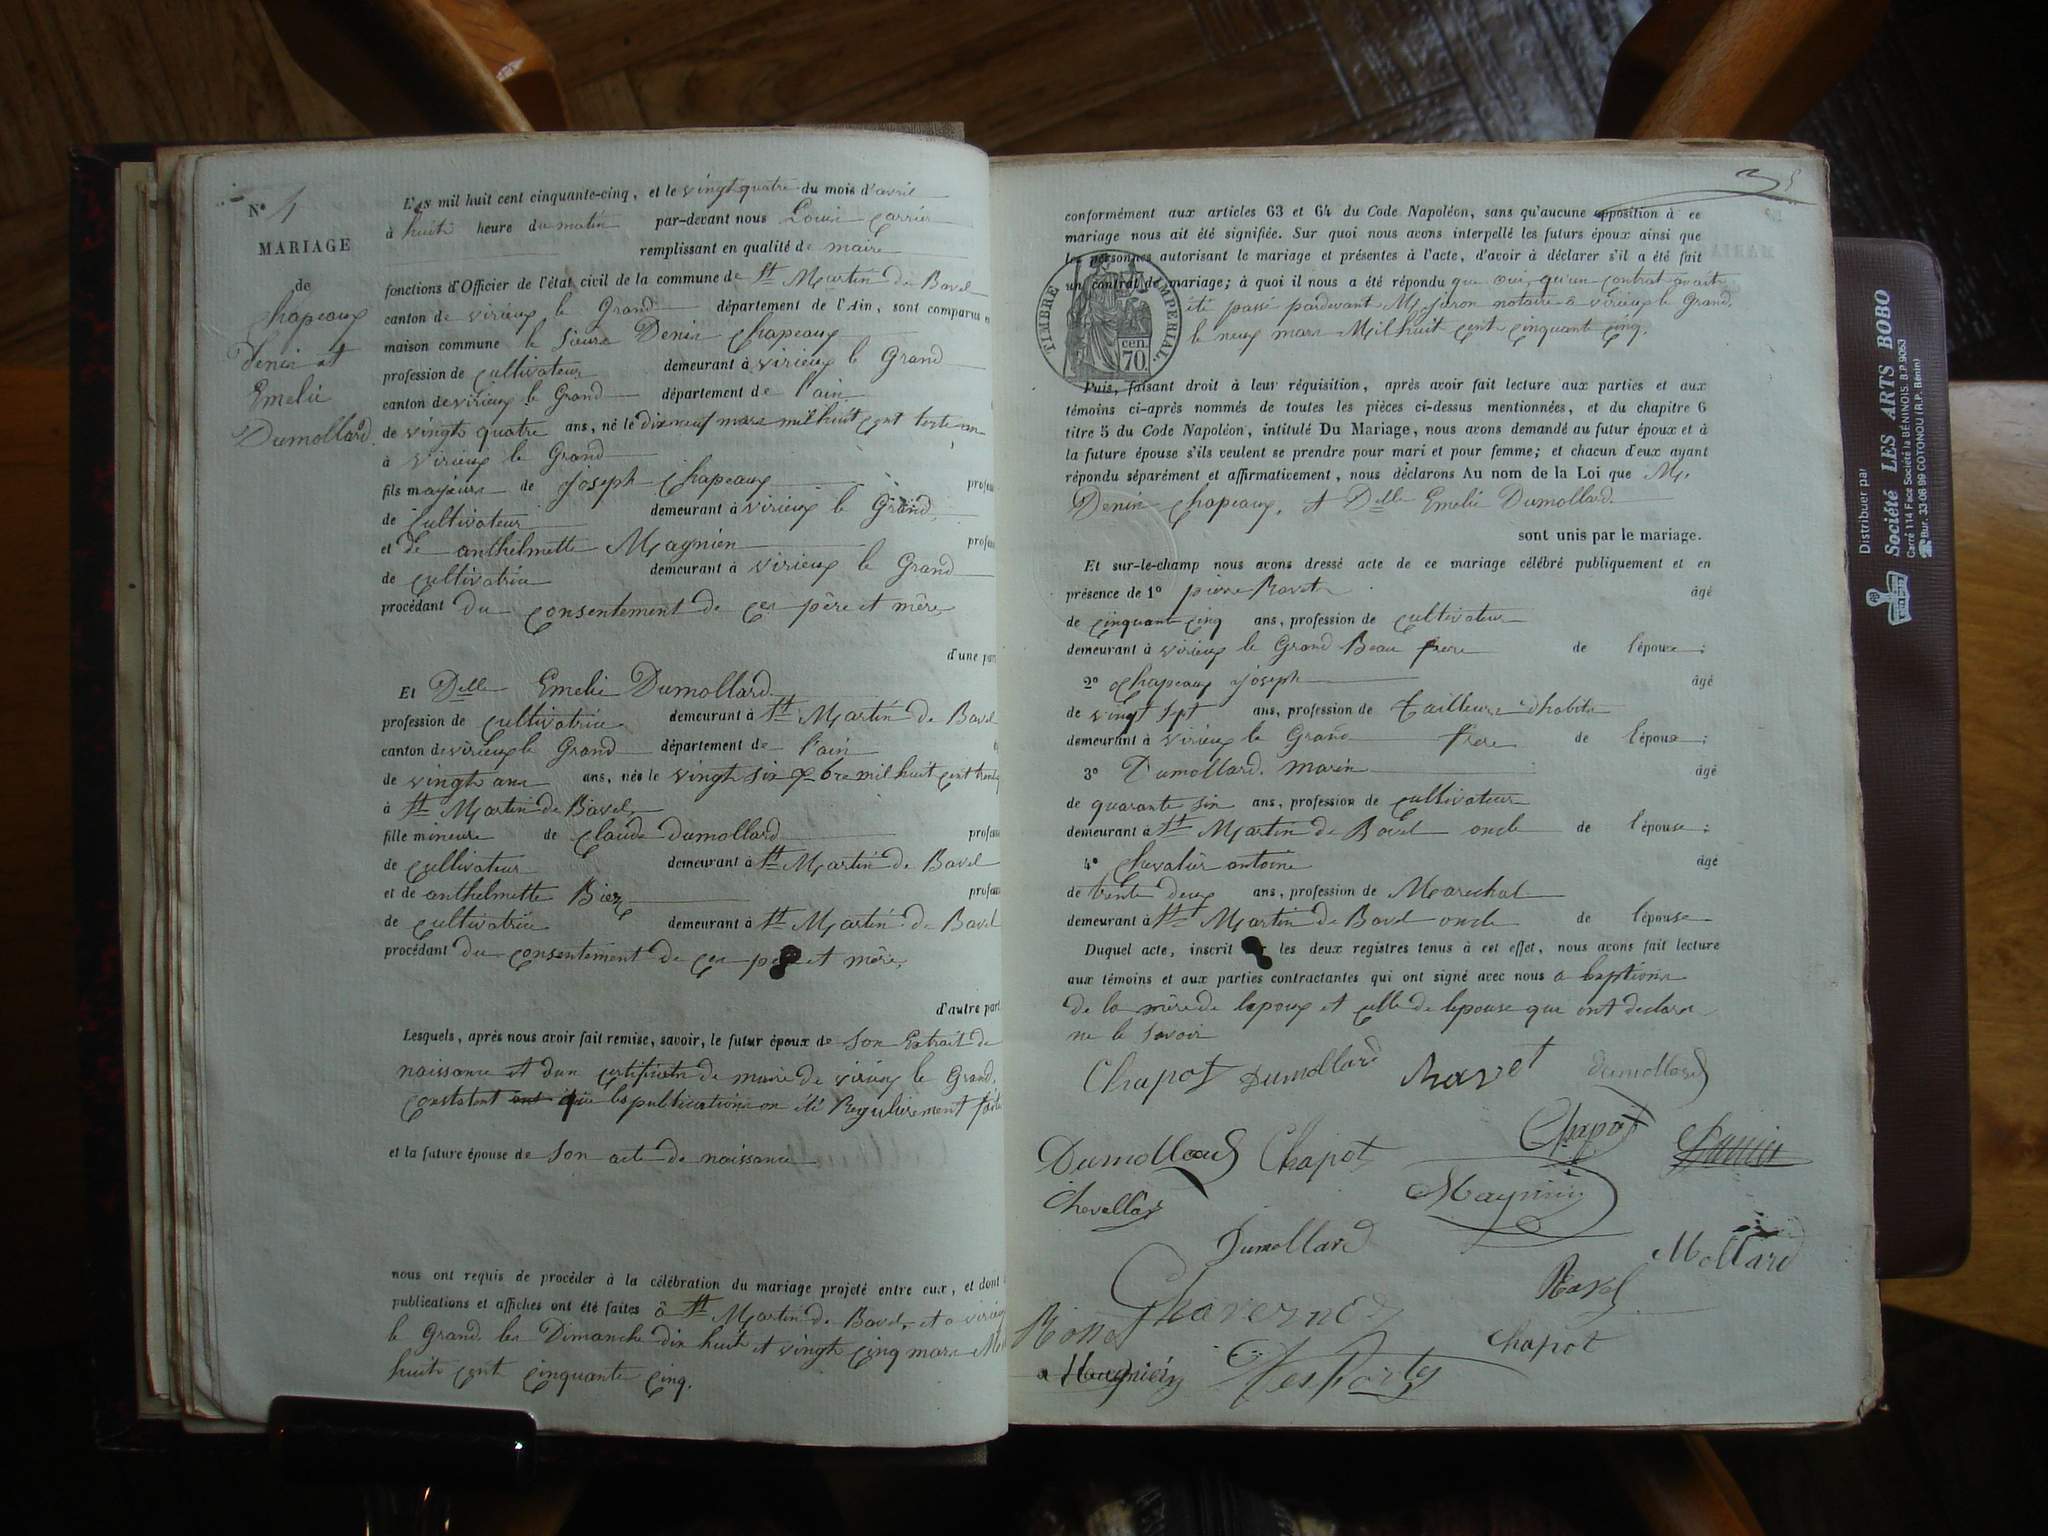 Nº 4
MARIAGE
de
Chapeaux
Denis et
Emelie
Dumollard.
L'an mil huit cent cinquante-cinq, et le vingt quatre du mois d'avril
à huit heure du matin par-devant nous Louis Carrier
remplissant en qualité de maire
fonctions d'Officier de l'état civil de la commune de St Martin de Bavel
canton de virieux le Grand département de l'Ain, sont comparus en
maison commune le Sieur Denis Chapeaux
profession de Cultivateur demeurant à virieux le Grand
canton de virieux le Grand département de l'ain
de vingt quatre ans, né le dix neuf mars mil huit cent
à virieux le Grand
fils majeur de Joseph Chapeaux profess
de Cultivateur demeurant à virieux le Grand
et de anthelmette Magnien profess
de Cultivatrice demeurant à virieux le Grand
procédant du Consentement de Ces père et mère,
d'une part
Et Delle Emelie Dumollard
profession de Cultivatrice demeurant à St Martin de Bavel
canton de virieux le Grand département de l'ain
de vingt ans ans, née le vingt six bre mil huit cent
à St Martin de Bavel
fille mineure de Claude Dumollard profess
de Cultivateur demeurant à St Martin de Bavel
et de anthelmette profess
de Cultivatrice demeurant à St Martin de Bavel
procédant du Consentement de Ces et mère,
d'autre part
Lesquels, après nous avoir fait remise, savoir, le futur époux de Son Extrait de
naissance et dun Certificat de maire de virieux le Grand,
Constatent que les publications on été Regulierement faite
et la future épouse de Son acte de naissance
nous ont requis de procéder à la célébration du mariage projeté entre eux, et dont
publications et affiches ont été faites à St Martin de Bavel, et a virieux
le Grand les Dimanche dix huit et vingt Cinq mars Mil
huit Cent Cinquante Cinq.
conformément aux articles 63 et 64 du Code Napoléon, sans qu'aucune opposition à ce
mariage nous ait été signifiée. Sur quoi nous avons interpellé les futurs époux ainsi que
les personnes autorisant le mariage et présentes à l'acte, d'avoir à déclarer s'il a été fait
un contrat de mariage; à quoi il nous a été répondu que oui, qu'un Contrat avait
été passé pardevant Me Juron notaire a virieux le Grand,
le neuf mars Mil huit Cent Cinquante Cinq.
TIMBRE IMPERIAL.
70 cen.
Puis, faisant droit à leur réquisition, après avoir fait lecture aux parties et aux
témoins ci-après nommés de toutes les pièces ci-dessus mentionnées, et du chapitre 6
titre 5 du Code Napoléon, intitulé Du Mariage, nous avons demandé au futur époux et à
la future épouse s'ils veulent se prendre pour mari et pour femme; et chacun d'eux ayant
répondu séparément et affirmativement, nous déclarons Au nom de la Loi que M.
Denis Chapeaux, et Delle Emelie Dumollard
sont unis par le mariage.
Et sur-le-champ nous avons dressé acte de ce mariage célébré publiquement et en
présence de 1º pierre Ravet âgé
de Cinquant Cinq ans, profession de Cultivateur
demeurant à virieux le Grand Beau frere de l'époux;
2º Chapeaux Joseph âgé
de vingt sept ans, profession de tailleur d'habits
demeurant à virieux le Grand frere de l'époux;
3º Dumollard marin âgé
de quarante six ans, profession de Cultivateur
demeurant à St Martin de Bavel oncle de l'épouse;
4º Chevalier antoine âgé
de trente deux ans, profession de Marechal
demeurant à St Martin de Bavel oncle de l'épouse
Duquel acte, inscrit les deux registres tenus à cet effet, nous avons fait lecture
aux témoins et aux parties contractantes qui ont signé avec nous
de la mère de lepoux et celle de lepouse que ont declarer
ne le savoir
Chapot Dumollard Ravet Dumollard
Dumollard Chapot Chapot
Magnien
Dumollard
Mollard
Ravet
Chapot
Distribuer par
Société LES ARTS BOBO
Carré 114 Face Société la BÉNINOIS. B.P. 9063
Bur. 33 06 99 COTONOU (R.P. Bénin)